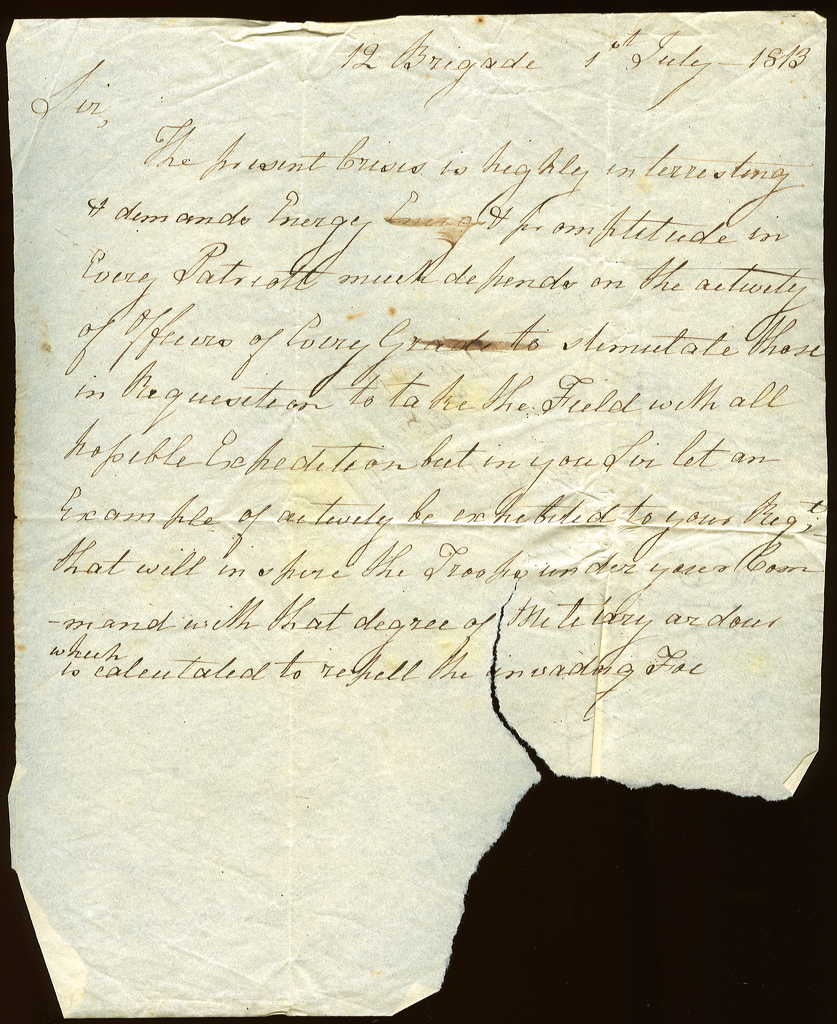 12 Brigade 1st July - 1813
Sir,
The present Crisis is highly interresting
& demands Energy Energ & promptitude in
Every Patriott much depends on the activity
of Officers of Every Grade to stimulate those
in Requisition to take the Field with all
possible Expedition but in you Sir let an
Example of activity be exhibited to your Regt;
that will inspire the Troops under your Com
-mand with that degree of Military ardour
which
is calculated to repell the invading Foe